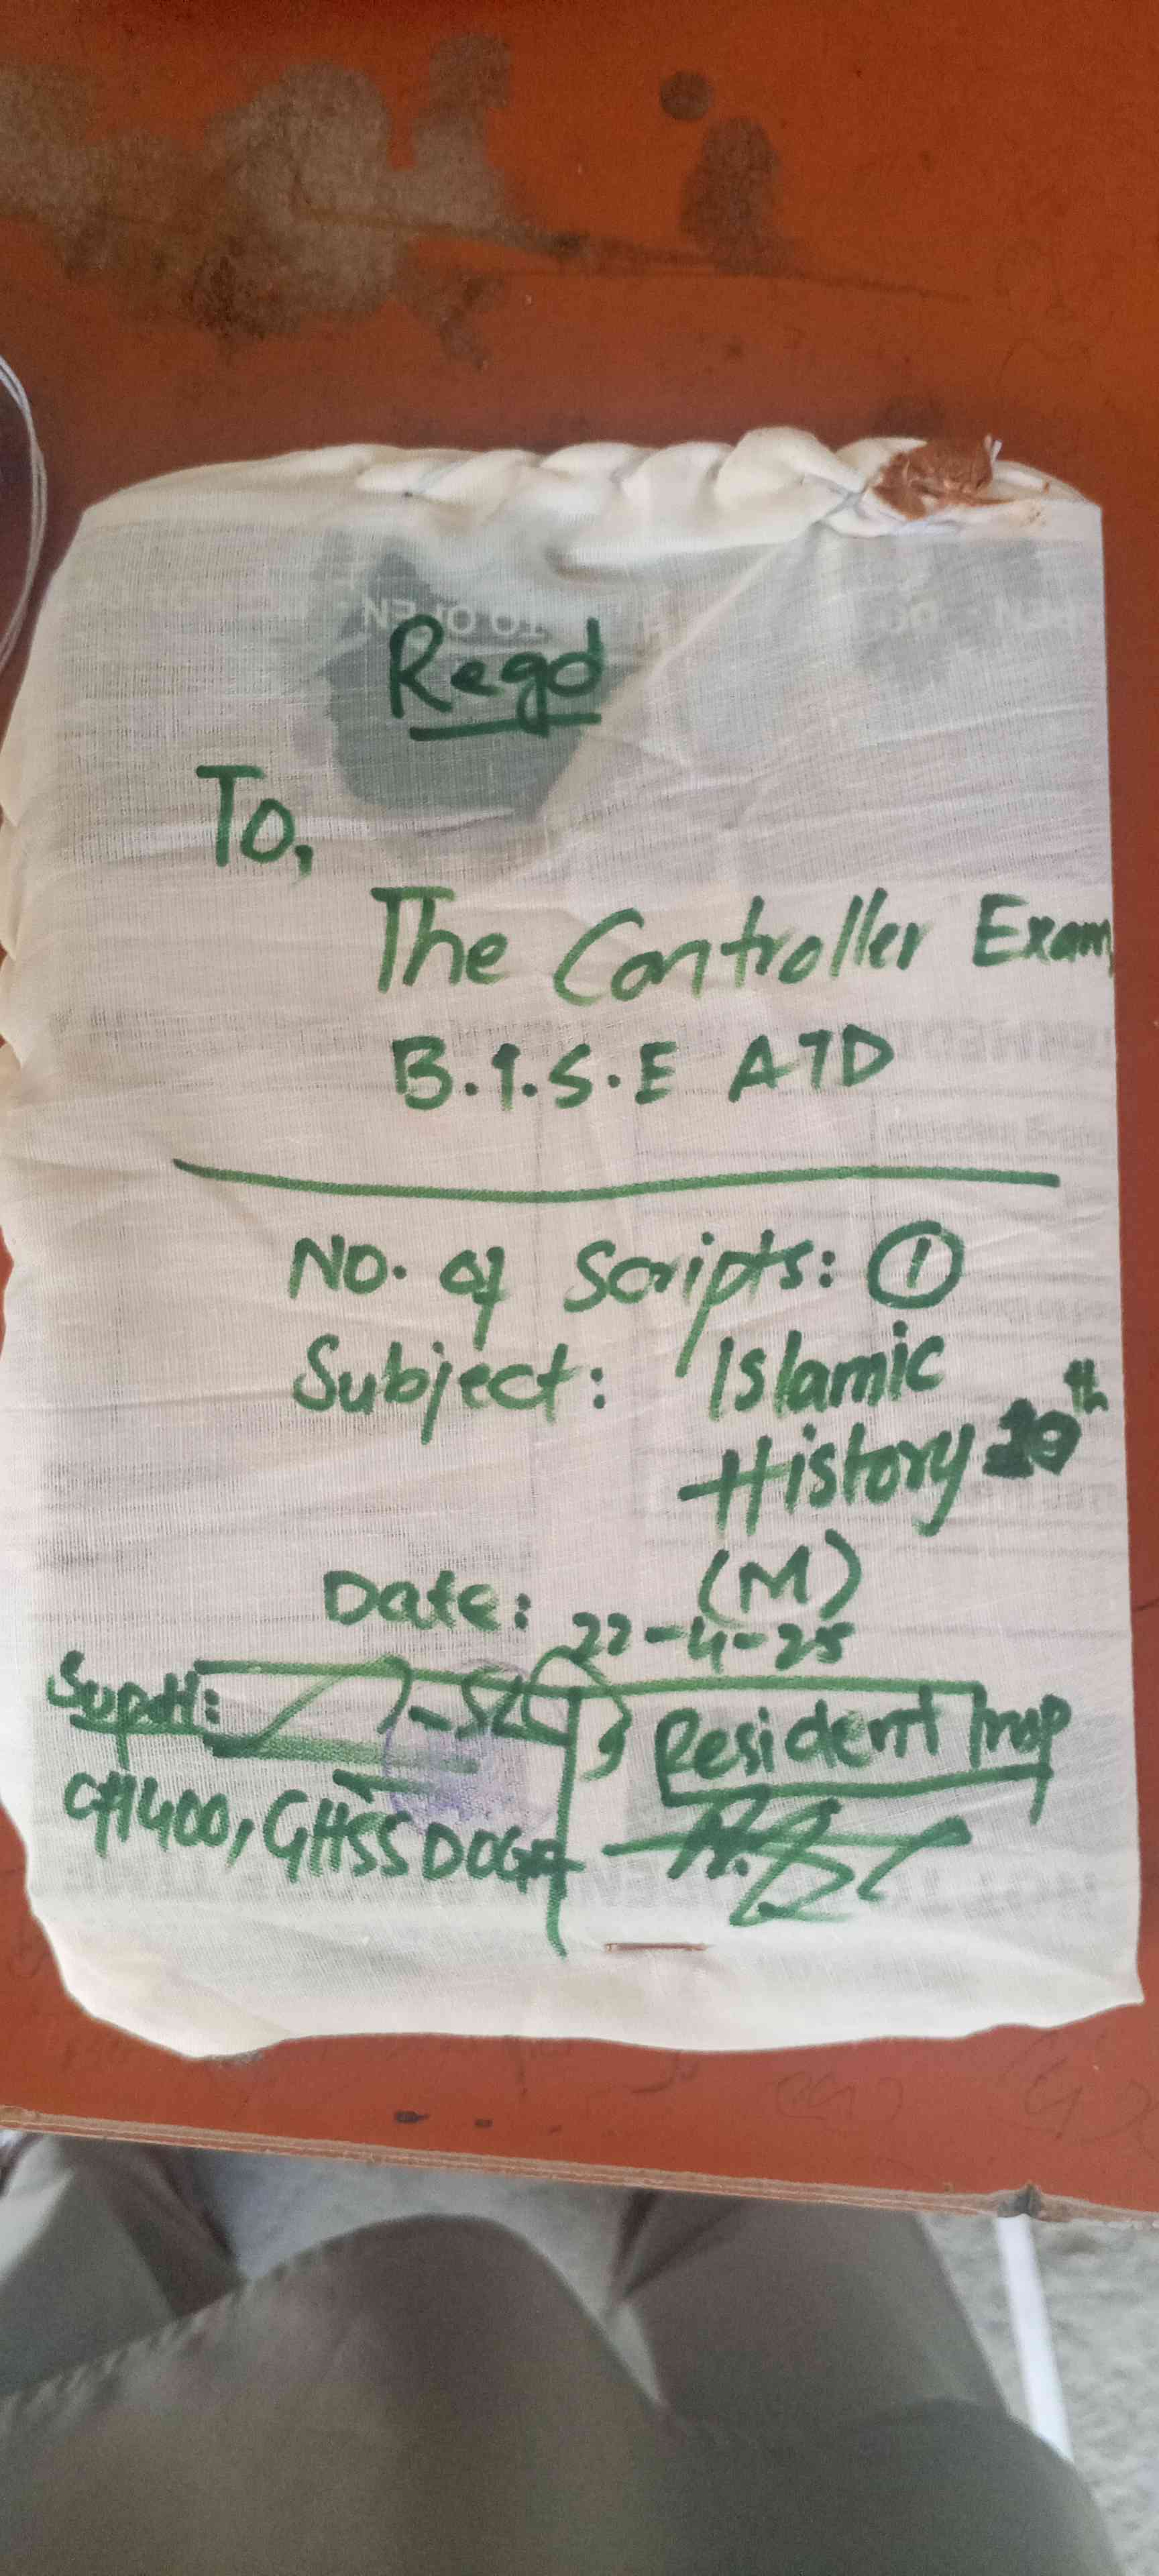 Regd
To,
The Controller Exam,
B.I.S.E ATD
No. of Scripts: 1
Subject: Islamic
History 10th
(M)
Date: 22-4-25
Supdt:
Resident Insp
400, GHSS DOGA
TO OPEN